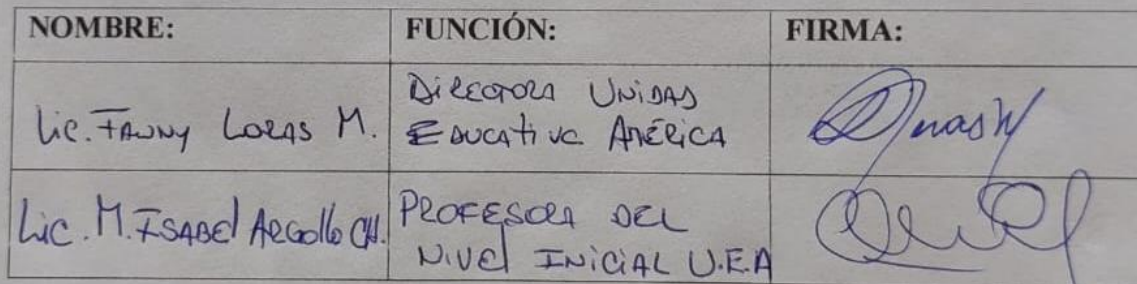 NOMBRE: FUNCIÓN: FIRMA:
Lic. Fanny Loras M. Directora Unidad
Educativa América
Lic. M. Isabel Argollo Ch. Profesora del
Nivel Inicial U.E.A